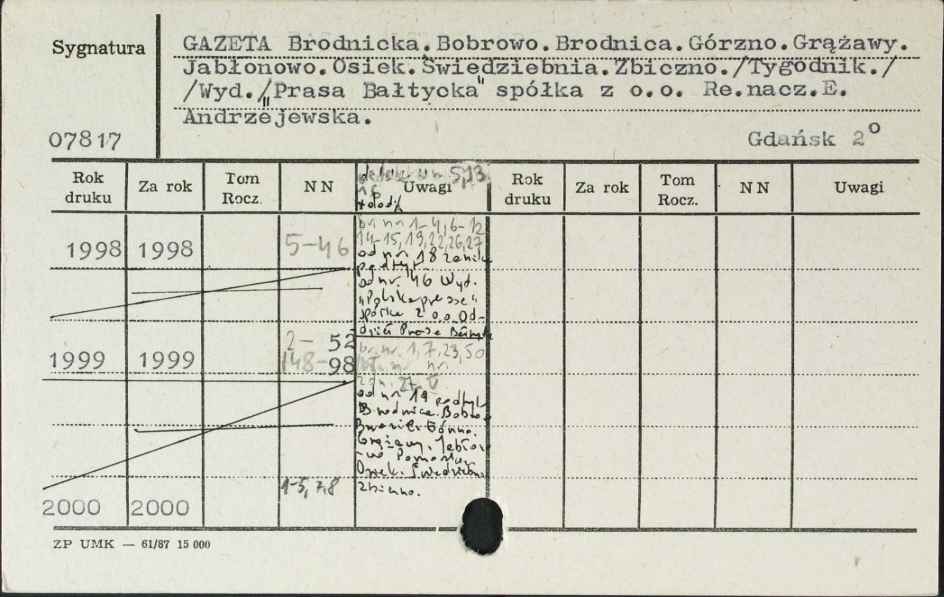 Sygnatura
GAZETA Brodnicka.Bobrowo.Brodnica.Górzno.Grążawy.
Jabłonowo.Osiek.Świedziebnia.Zbiczno./Tygodnik./
/Wyd./"Prasa Bałtycka" spółka z o.o. Re.nacz.E.
Andrzejewska.
07817
Gdańsk 2°
Rok druku
Za rok
Tom Rocz.
NN
Uwagi
Rok druku
Za rok
Tom Rocz.
NN
Uwagi
5,13
1998 1998 5-46
br. nr 1-4, 6-12
14-15, 19, 22, 26, 27
od nr 18
od nr. 46 Wyd.
"Polskapresse"
spółka z o.o. Od-
dział Prasa
1999 1999
2- 52
148-98
br. nr. 1, 7, 23, 50
od nr 19 podtyt.
Brodnica. Bobro
Jabłono
-wo Pomorsk.
Osiek. Świedziebn
Zbiczno.
2000 2000 1-5, 7, 8
ZP UMK — 61/87 15 000